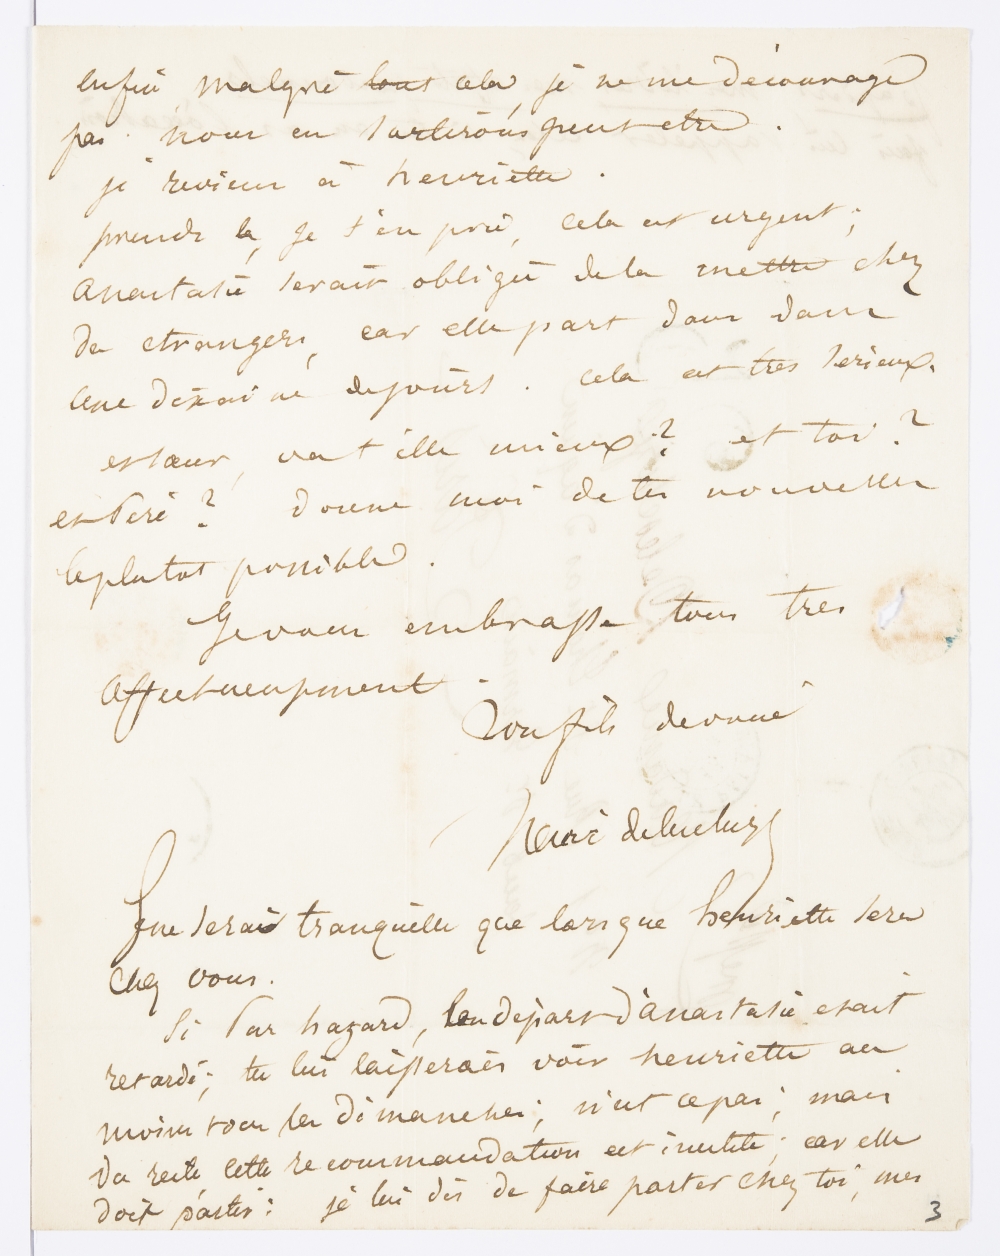 enfin, malgré tout cela, je ne me décourage
pas. nous en sortirons peut etre.
je reviens à henriette.
prends la, je t'en prie, cela est urgent;
anastasie serait obligée de la mettre chez
des etrangers, car elle part dans dans
une dixaine de jours. cela est tres serieux.
et soeur, va t'elle mieux? et toi?
et Péré? donne moi de tes nouvelles
le plutot possible.
Je vous embrasse tous tres
affectueusement.
Ton fils devoué
Je ne serais tranquille que lorsque henriette sera
chez vous.
Si Par hazard, le depart d'anastasie etait
retardé; tu lui laisserais voir henriette au
moins tous les dimanches; n'est ce pas; mais
du reste, cette recommandation est inutile; car elle
doit partir: je lui dis de faire porter chez toi, mes
3